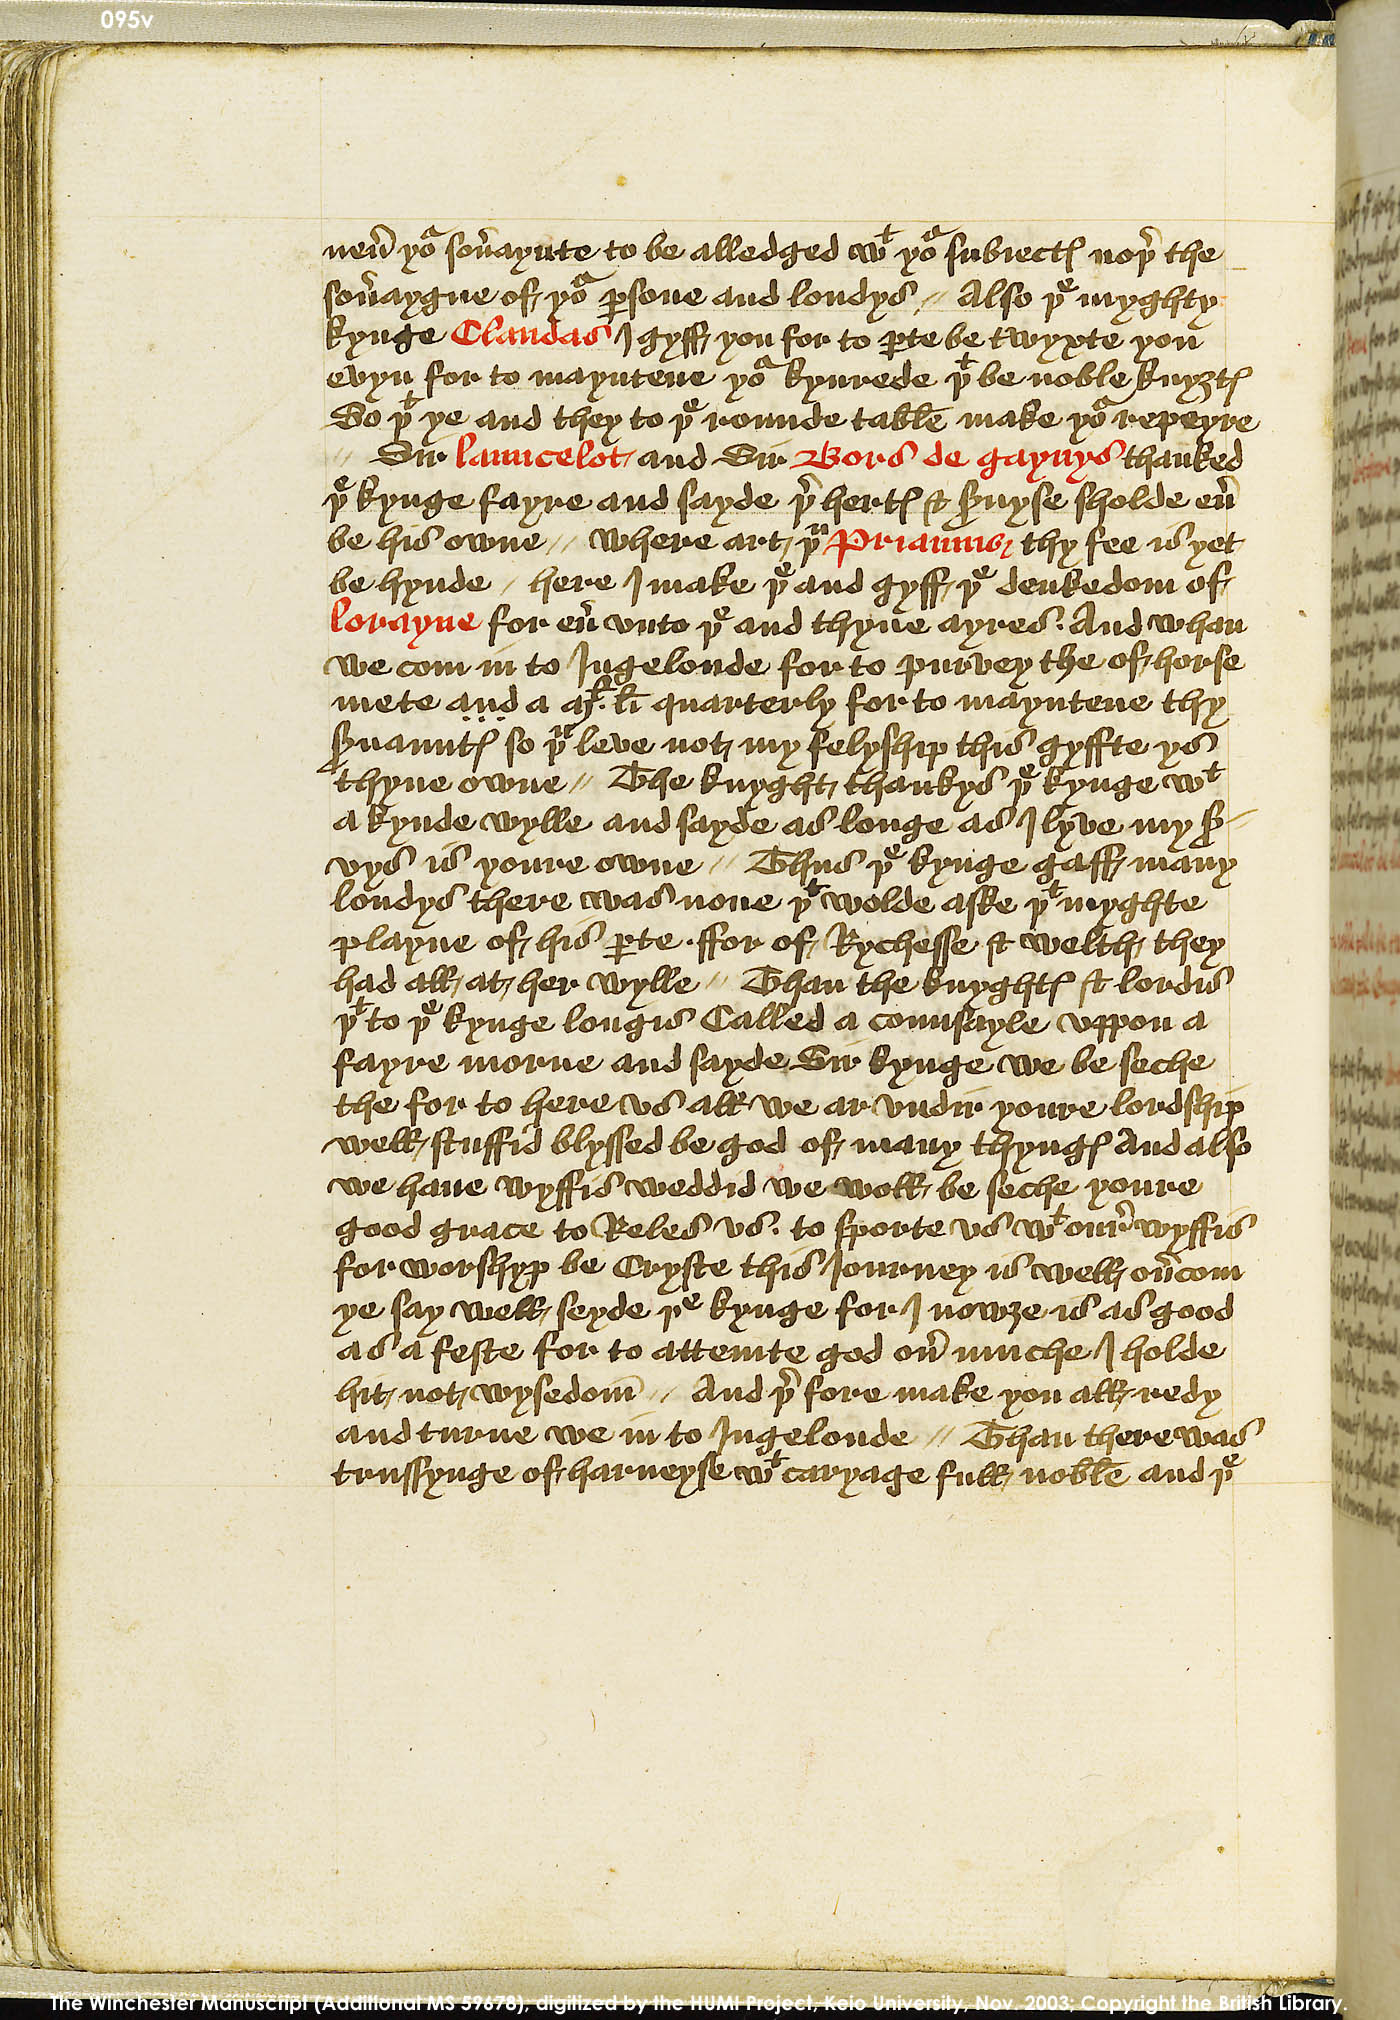 095v
neuͬ yoᵃ soūaynte to be alledged wᵗ yoᵃ subiectꝭ noþͬ the
soūaygne of yoᵃ ꝑsone and londys // Also þᵉ myghty
kynge Claudas I gyff you for to ꝑte be twyxte you
evyn for to mayntene yoᵃ kynrede þᵗ be noble knyȝtꝭ
So þᵗ ye and they to þᵉ rounde table make yoᵃ repeyre
// Sir launcelot and Sir Bors de gaynys thanked
þᵉ kynge fayre and sayde þͬ hertꝭ & ẜuyse sholde euͬ
be his owne // where art þᵘ Priamus thy fee is yet
be hynde / here I make þᵉ and gyff þᵉ deukedom of
lorayne for euͬ vnto þᵉ and thyne ayres. And whan
we com in to Ingelonde for to purvey the of horse
mete and a qͬt. li quarterly for to mayntene thy
ẜuauntꝭ so þᵘ leve not my felyship this gyffte ys
thyne owne // The knyght thankys þᵉ kynge wᵗ
a kynde wylle and sayde as longe as I lyve my ẜ//
vys is youre owne // Thus þᵉ kynge gaff many
londys there was none þᵗ wolde aske þᵗ myghte
playne of his ꝑte . ffor of Rychesse & welth they
had all at her wylle // Than the knyghtꝭ & lordis
þᵗ to þᵉ kynge longis Called a counsayle vppon a
fayre morne and sayde Sir kynge we be seche
the for to here vs all we ar vndir youre lordship
well stuffid blyssed be god of many thyngꝭ And also
we haue wyffis weddid we woll be seche youre
good grace to Reles vs. to sporte vs wᵗ ourͬ wyffis
for worshyp be Cryste this Iourney is well ouͬcom
ye say well seyde þᵉ kynge for I nowȝe is as good
as a feste for to attemte god ouͬ muche I holde
hit not wysedom̄ // And þͬ fore make you all redy
and turne we in to Ingelonde // Than there was
trussynge of harneyse wᵗ caryage full noble and þᵉ
The Winchester Manuscript (Additional MS 59678), digitized by the HUMI Project, Keio University, Nov. 2003; Copyright the British Library.